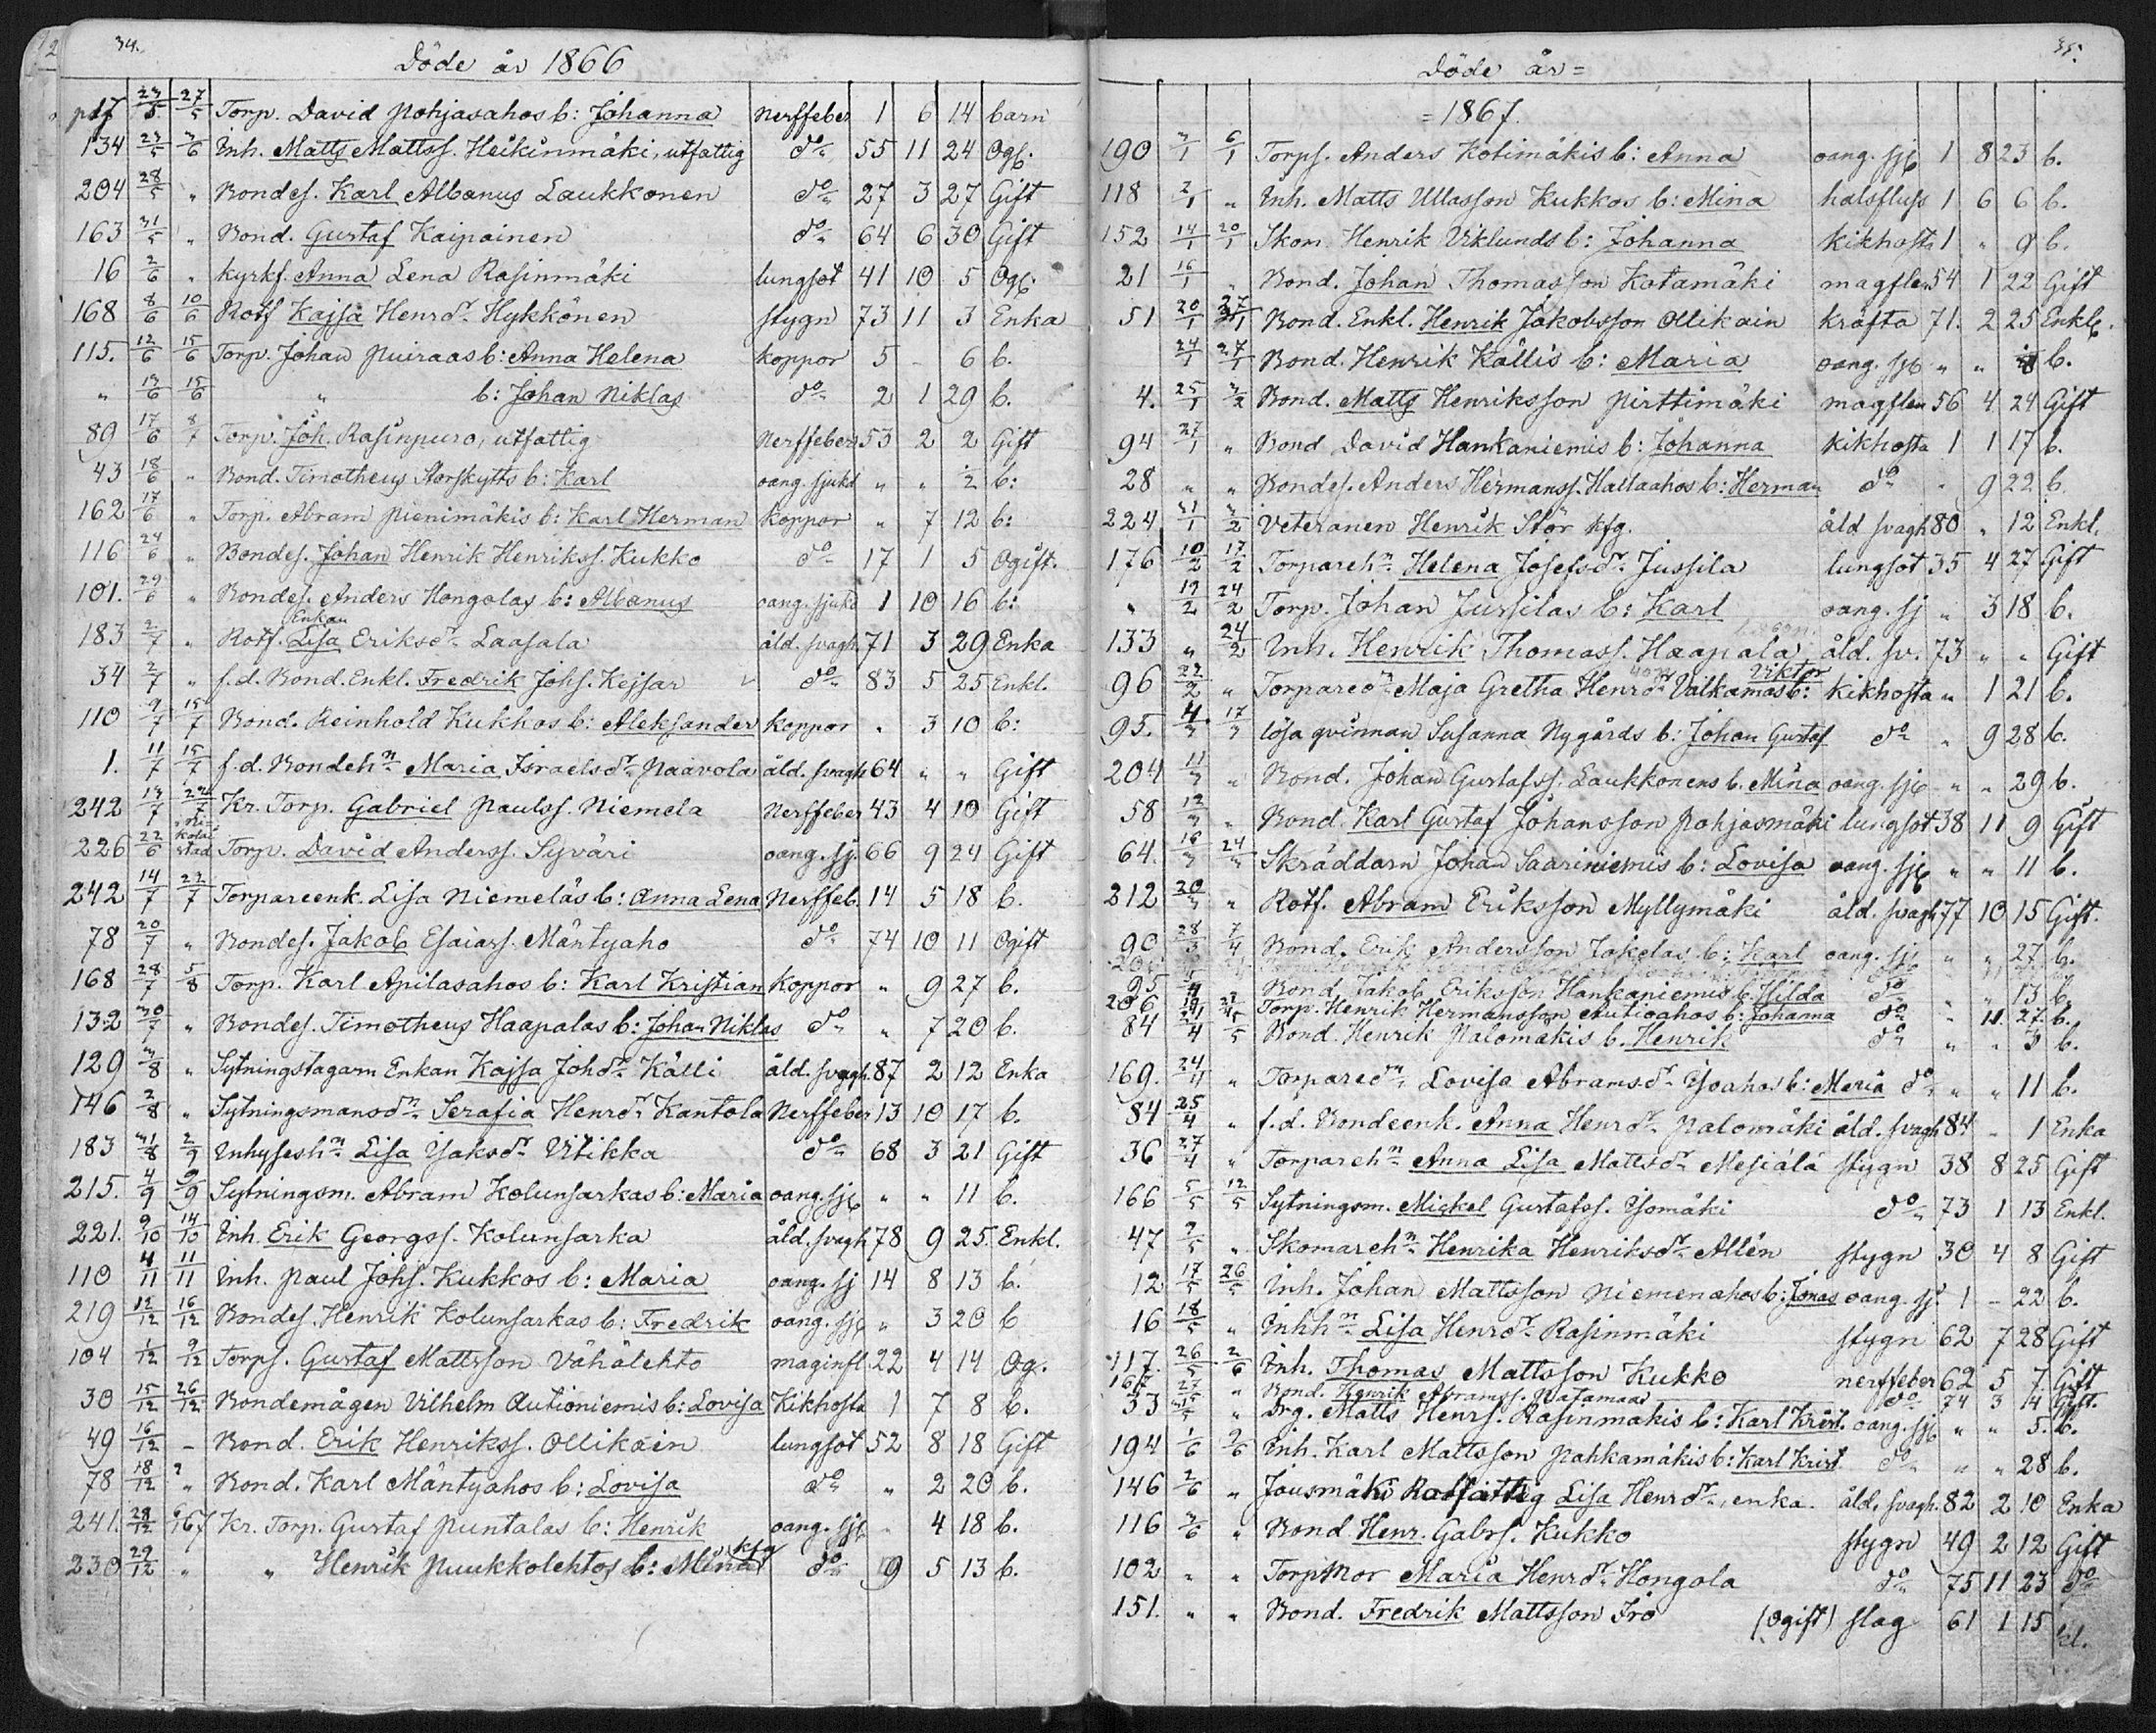 34.
Döde år 1866
p17 23/5 27/5 Torp. David Pohjasahos b: Johanna Nerffeber 1 6 14 barn
134 23/5 3/6 Inh. Matts Mattss. Heikinmäki, utfattig do 55 11 24 Ogl.
204 28/5 " Bondes. Karl Albanus Laukkonen do 27 3 27 Gift
163 31/5 " Bond. Gustaf Kaipainen do 64 6 30 Gift
16 2/6 " Kyrkf. Anna Lena Rasinmäki lungsot 41 10 5 Ogl.
168 8/6 10/6 Rotf Kajsa Henrdr Hykkönen stygn 73 11 3 Enka
115. 12/6 15/6 Torp. Johan Puiraas b: Anna Helena koppor 5 - 6 b.
" 13/6 15/6 " b: Johan Niklas do 2 1 29 b.
89 17/6 8/7 Torp. Joh. Rasinpuro, utfattig Nerffeber 53 2 2 Gift
43 18/6 " Bond. Timotheus Storskytts b: Karl oang. sjukd " " 1/2 b:
162 17/6 " Torp. Abram Pienimäkis b: Karl Herman koppor " 7 12 b:
116 24/6 " Bondes. Johan Henrik Henrikss. Kukko do 17 1 5 Ogift.
101. 29/6 " Bondes. Anders Hongolas b: Albanus oang. sjukd 1 10 16 b:
183 2/7 " Rotf. Enkan Lisa Eriksdr Laasala åld. svagh 71 3 29 Enka
34 2/7 " f.d. Bond. Enkl. Fredrik Johs. Keisar do 83 5 25 Enkl.
110 9/7 15/7 Bond. Reinhold Kukkos b: Aleksander koppor " 3 10 b:
1. 11/7 15/7 f.d. Bondehn Maria Israelsdr Paavola åld. svagh 64 " " Gift
242 13/7 22/7 Kr. Torp. Gabriel Paulss. Niemela Nerffeber 43 4 10 Gift
226 22/6 Nikolaistad Torp. David Anderss. Syväri oang. sj. 66 9 24 Gift
242 14/7 22/7 Torpareenk. Lisa Niemeläs b: Anna Lena Nerffeb. 14 5 18 b.
78 20/7 " Bondes. Jakob Esaiass. Mäntyaho do 74 10 11 Ogift
168 28/7 5/8 Torp. Karl Apilasahos b: Karl Kristian Koppor " 9 27 b.
132 30/7 " Bondes. Timotheus Haapalas b: Johan Niklas do " 7 20 b.
129 3/8 " Sytningstagarn Enkan Kajsa Johdr Källi åld. svagh. 87 2 12 Enka
146 2/8 " Sytningsmansdn Serafia Henrdr Kantola Nerffeber 13 10 17 b.
183 31/8 2/9 Inhyseshn Lisa Isaksdr Vitikka do 68 3 21 Gift
215. 4/9 9/9 Sytningsm. Abram Kolunsarkas b: Maria oang. sjd " " 11 b.
221. 9/10 14/10 Inh. Erik Georgss. Kolunsarka åld. svagh 78 9 25. Enkl.
110 4/11 11/11 Inh. Paul Johs. Kukkos b: Maria oang. sj 14 8 13 b.
219 12/12 16/12 Bondes. Henrik Kolunsarkas b: Fredrik oang. sjd " 3 20 b
104 1/12 9/12 Torps. Gustaf Mattsson Vähälehto maginfl. 22 4 14 Og.
30 15/12 26/12 Bondemågen Vilhelm Autioniemis b: Lovisa Kikhosta 1 7 8 b.
49 16/12 - Bond. Erik Henrikss. Ollikain lungsot 52 8 18 Gift
78 18/12 " Bond. Karl Mäntyahos b: Lovisa do " 2 20 b.
241. 28/12 6/1 67 Kr. Torp. Gustaf Puntalas b: Henrik oang. sjd " 4 18 b.
230 29/12 " " Henrik Puukkolehtos b: Mina kfg do 9 5 13 b.
35.
Döde år =
= 1867.
190 3/1 6/1 Torps. Anders Kotimäkis b: Anna oang. sjd 1 8 23 b.
118 2/1 " Inh. Matts Ullasson Kukkos b: Mina halsfluss 1 6 6 b.
152 14/1 20/1 Skom. Henrik Viklunds b: Johanna kikhosta 1 " 9 b.
21 16/1 " Bond. Johan Thomasson Kotamäki magflen 54 1 22 Gift
51 20/1 27/1 Bond. Enkl. Henrik Jakobsson Ollikain kräfta 71. 2 25 Enkl.
24/1 27/1 Bond. Henrik Källis b: Maria oang. sjd " " 8 b.
4. 25/1 3/2 Bond. Matts Henriksson Pirttimäki magflen 56 4 24 Gift
94 27/1 " Bond David Hankaniemis b: Johanna kikhosta 1 1 17 b.
28 " " Bondes. Anders Hermanss. Hallaahos b: Herman do " 9 22 b
224 31/1 3/2 Veteranen Henrik Stör kfg. åld svagh 80 " 12 Enkl.
176 10/2 17/2 Torparehn Helena Josefsdr Jussila lungsot 35 4 27 Gift
" 19/2 24/2 Torp. Johan Jussilas b: Karl oang. sj " 3 18 b.
133 " 24/2 Inh. Henrik Thomass. Haapala åld. sv. 73 " " Gift
96 22/2 " Torparedn Maja Gretha Henrdr Valkamas b: Viktor kikhosta " 1 21 b.
95. 4/3 17/3 lösa qvinnan Susanna Nygårds b: Johan Gustaf do " 9 28 b.
204 11/3 " Bond. Johan Gustafss. Laukkonens b. Mina oang. sjd " " 29 b.
58 12/3 " Bond. Karl Gustaf Johansson Pohjasmäki lungsot 38 11 9 Gift
64. 16/3 24/3 Skräddarn Johan Saariniemis b: Lovisa oang. sjd " " 11 b.
212 20/3 " Rotf. Abram Eriksson Myllymäki åld. svagh 77 10 15 Gift.
90 28/3 7/4 Bond. Erik Andersson Jakolas b: Karl oang. sjd " " 27 b.
95 Bond. Jakob Eriksson Hankaniemis b. Hilda do " " 13 b.
206 Torp. Henrik Hermansson Autioahos b: Johanna do " 11. 27. b.
84 Bond. Henrik Palomäkis b. Henrik do " " 3 b.
169. 24/4 " Torparedn Lovisa Abramsdr Ysoahos b: Maria do " " 11 b.
84 25/4 " f.d. Bondeenk. Anna Henrdr Palomäki åld. svagh 84 - 1 Enka
36 27/4 " Torparehn Anna Lisa Mattsdr Mesiälä stygn 38 8 25 Gift
166 5/5 12/5 Sytningsm. Mickel Gustafss. Ysomäki do 73 1 13 Enkl.
47 9/5 " Skomarehn Henrika Henriksdr Allén stygn 30 4 8 Gift
12 17/5 26/5 Inh. Johan Mattsson Niemenahos b: Jonas oang. sj. 1 - 22 b.
16 18/5 " Inhhn Lisa Henrdr Rasinmäki stygn 62 7 28 Gift
117. 26/5 2/6 Inh. Thomas Mattsson Kukko nerffeber 62 5 7. Gift
167 27/5 " Bond. Henrik Abramss. Patamaa do 74 3 14 Gift.
33 31/5 " Drg. Matts Henrs. Rasinmäkis b: Karl Krist. oang. sjd " " 5. b.
194 1/6 9/6 Inh. Karl Mattsson Pahkamäkis b: Karl Krist do " " 28 b.
146 2/6 " Jousmäki Rotfattig Lisa Henrdr, enka. åld. svagh. 82 2 10 Enka
116 3/6 " Bond Henr. Gabrs. Kukko stygn 49 2 12 Gift
102 " " Torpmor Maria Henrdr Hongola do 75 11 23 do
151. " " Bond. Fredrik Mattsson Iro (Ogift) slag 61 1 15 kl.